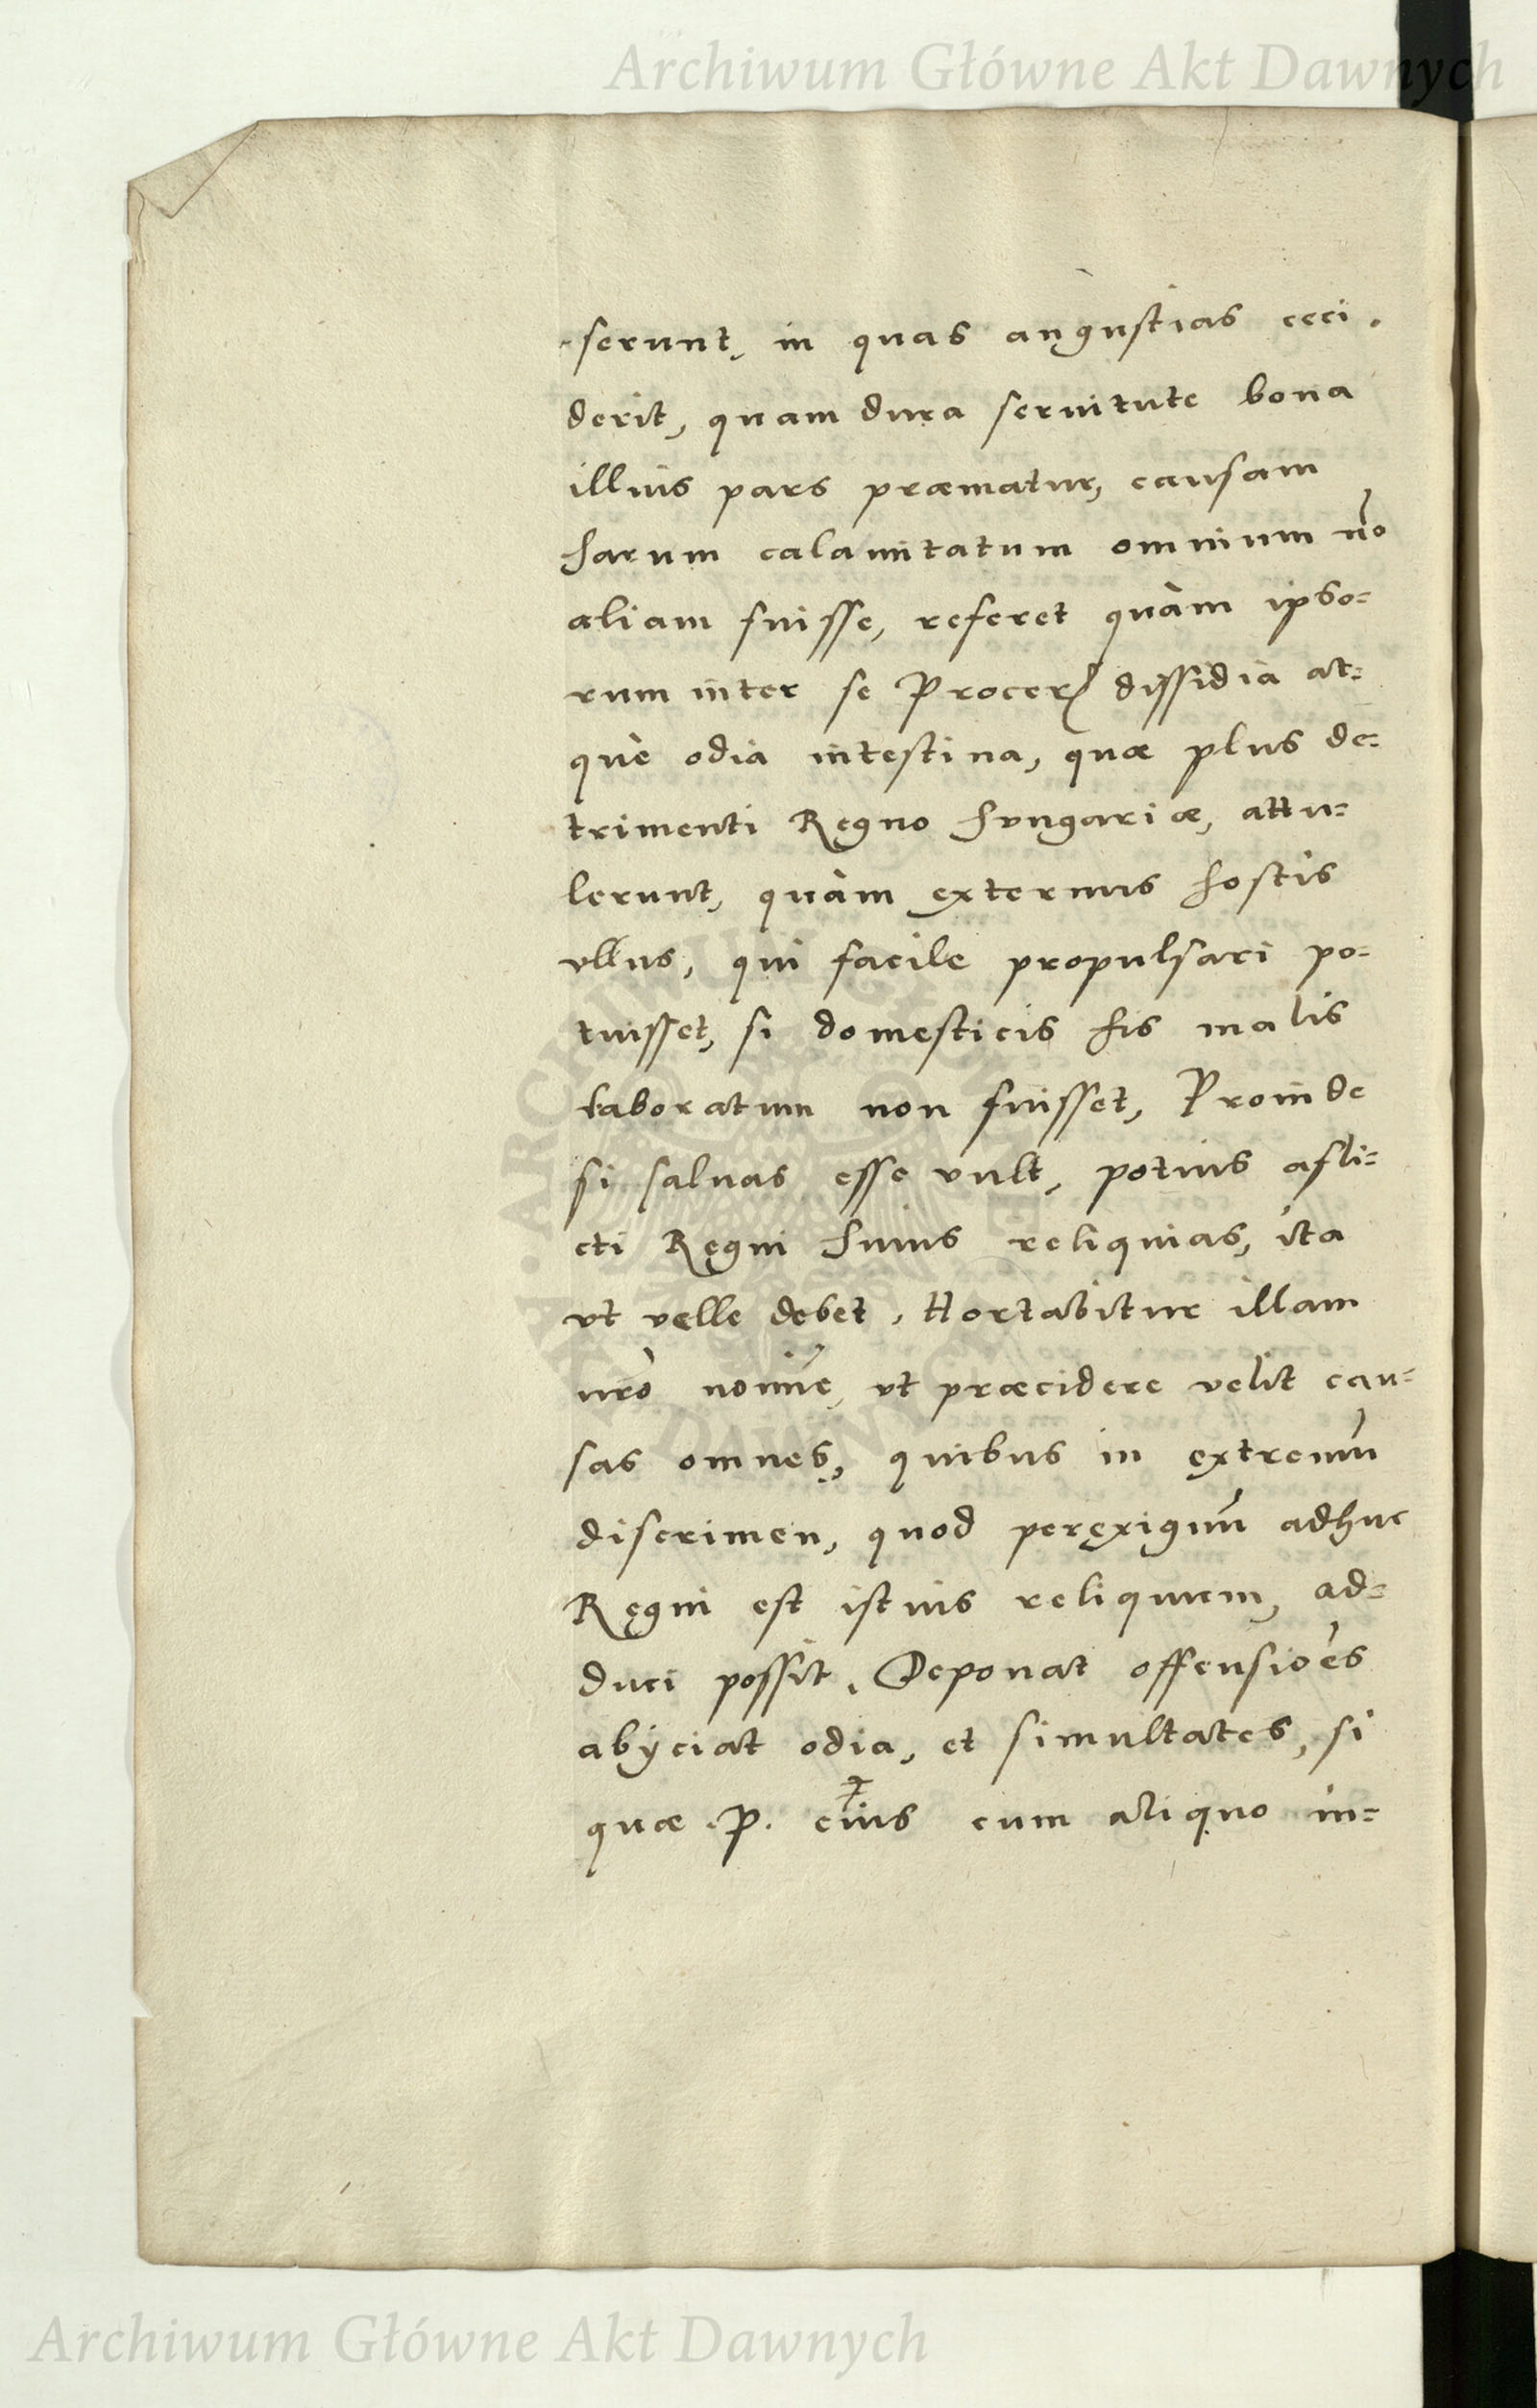 Archiwum Główne Akt Dawnych
serunt, in quas angustias ceci.
derit, quam dura seruitute bona
illius pars præmatur, causam
harum calamitatum omnium nō
aliam fuisse, referet quàm ipso=
rum inter se Procerū dissidia at=
què odia intestina, quæ plus de=
trimenti Regno Hvngariæ, attu=
lerunt, quàm externus hostis
vllus, qui facile propulsari po=
tuisset, si domesticis his malis
laboratum non fuisset, Proinde
si saluas esse vult, potius afli=
cti Regni huius reliquias, ita
vt velle debet, Hortabitur illam
nrō noīe, vt præcidere velit cau=
sas omnes, quibus in extremū
discrimen, quod perexiguū adhuc
Regni est istius reliquum, ad=
duci possit. Deponat offensiōes
abÿciat odia, et simultates, si
quæ .P. eius cum aliquo in=
ARCHIWUM
DAWNYCH
Archiwum Główne Akt Dawnych